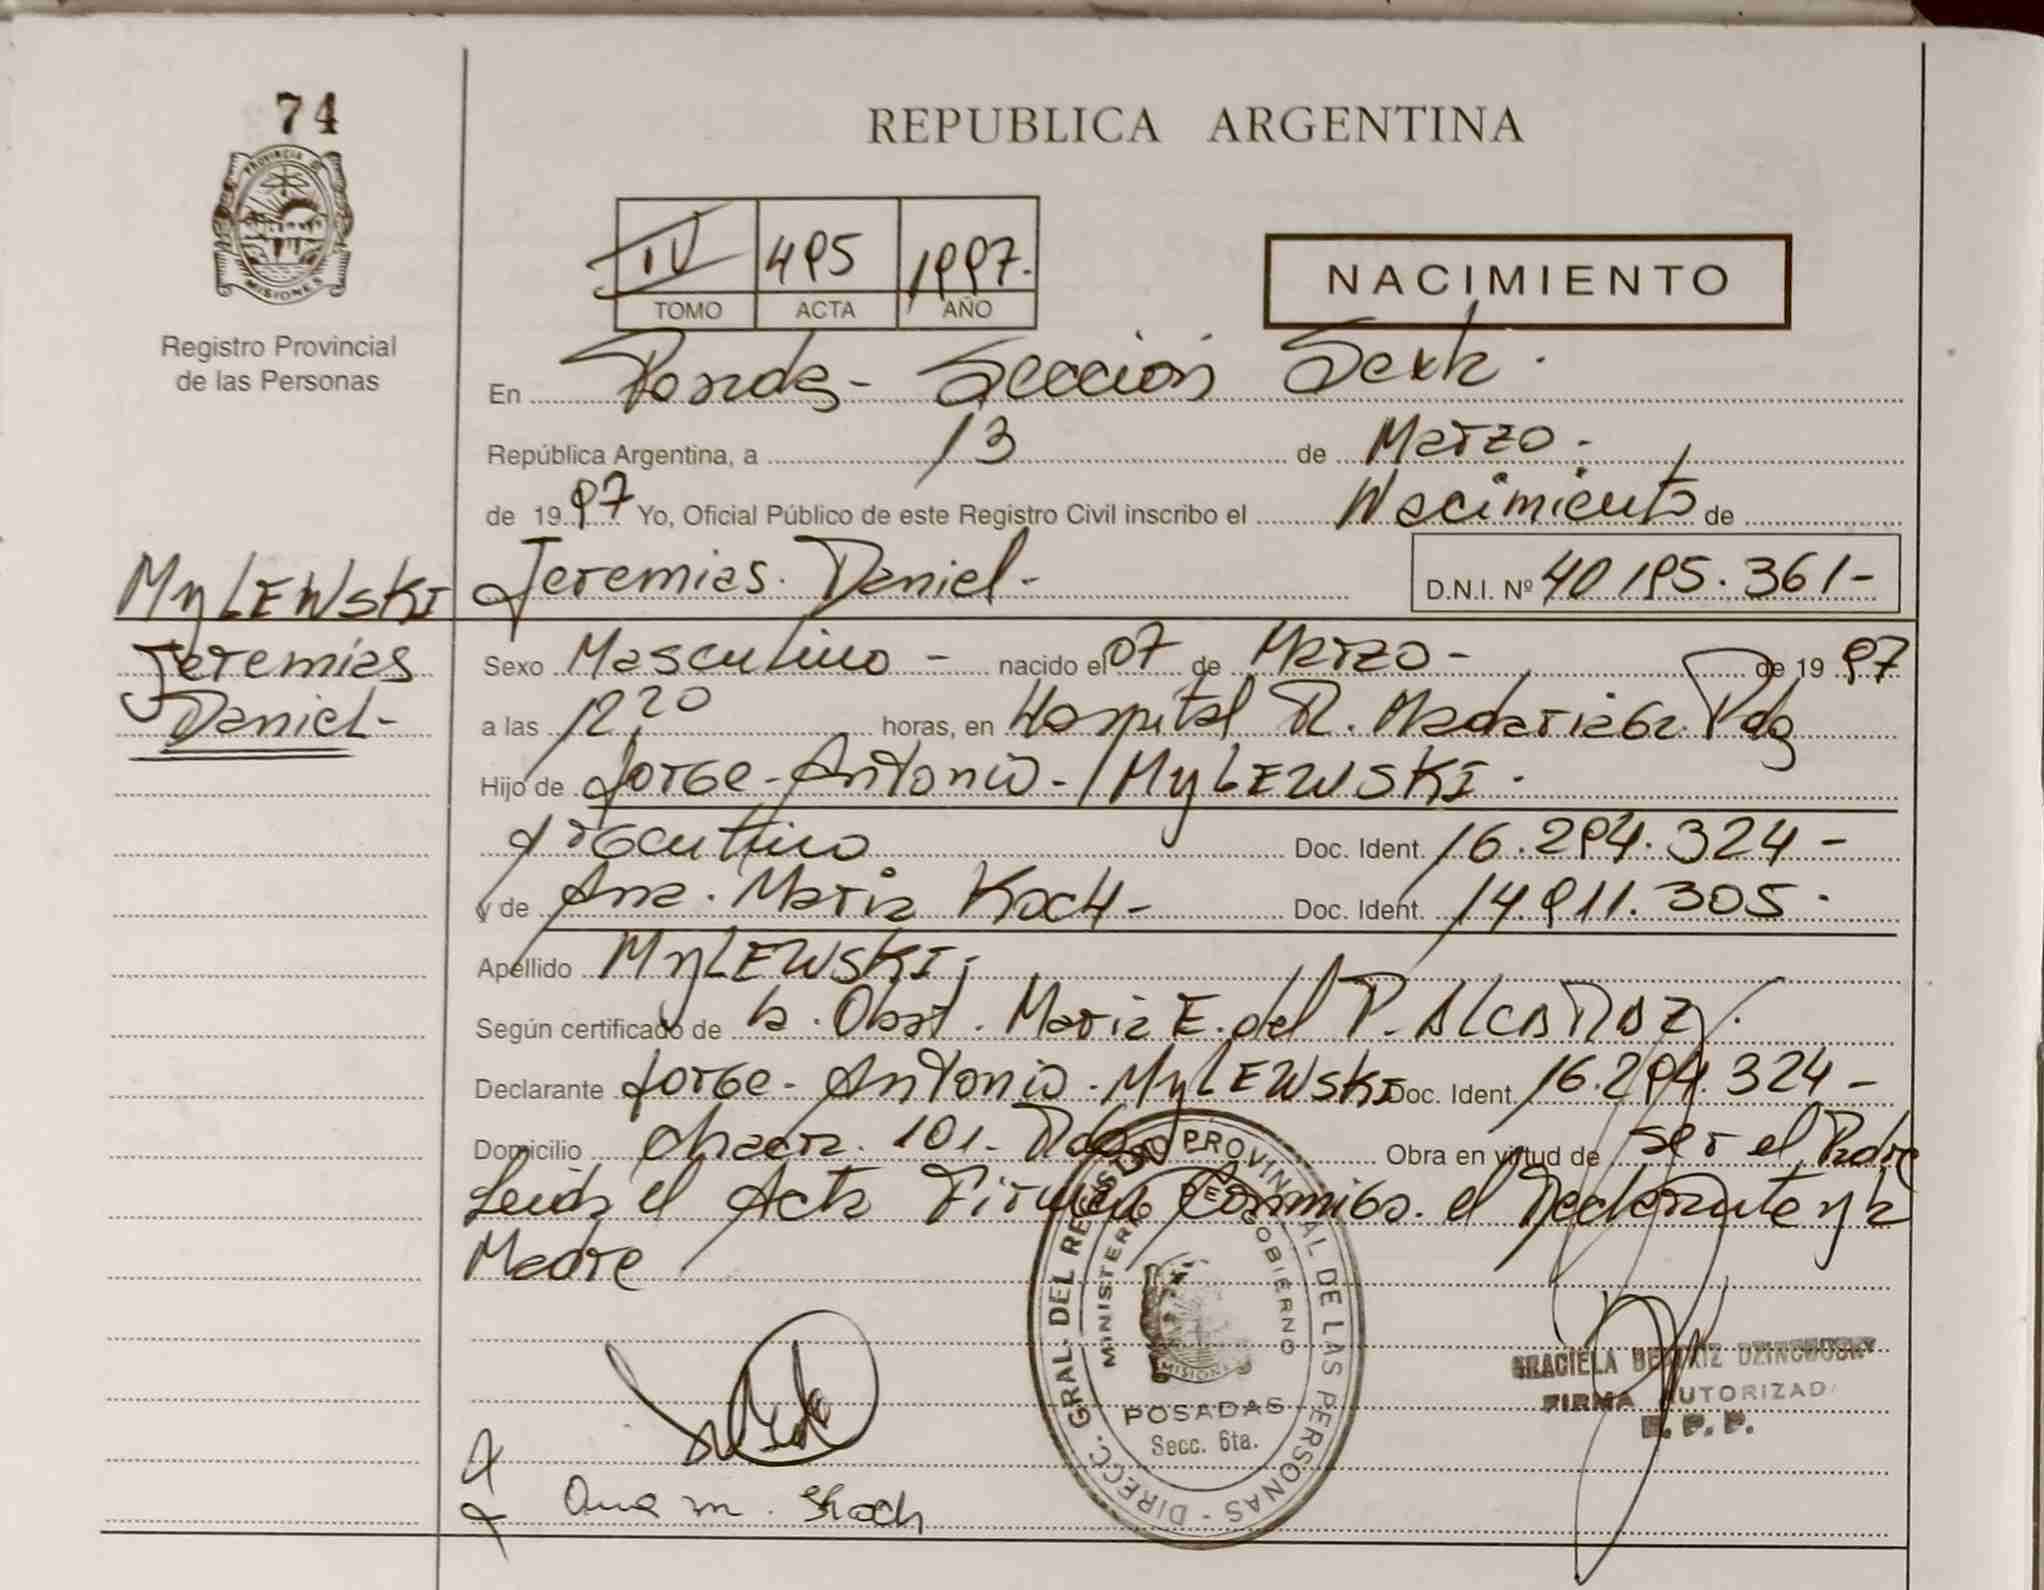 74
REPUBLICA ARGENTINA
PROVINCIA D
MISIONES
IV 495 1997.
TOMO ACTA AÑO
NACIMIENTO
Registro Provincial
de las Personas
En Posadas - Sección Sexta.
República Argentina, a 13 de Marzo.
de 1997 Yo, Oficial Público de este Registro Civil inscribo el Nacimiento de
MyLEWSKI Jeremias. Daniel - D.N.I. Nº 40 195.361-
Jeremías Sexo Masculino - nacido el 07 de Marzo - de 1997
Daniel - a las 12 20 horas, en Hospital R. Madariaga. Pdas
Hijo de Jorge - Antonio - MyLEWSKI.
Argentino Doc. Ident. 16.294.324 -
y de Ana. Maria KocH - Doc. Ident. 14.911.305.
Apellido MyLEWSKI,
Según certificado de la. Obst. Maria E. del P. ALCARAZ.
Declarante Jorge - Antonio - MyLEWSKI Doc. Ident 16.294.324 -
Domicilio chacra. 101 - Pdas Obra en virtud de ser el Padre
Leida el Acta Firman Conmigo. el Declarante y la
Madre
DIRECC. GRAL. DEL REGISTRO PROVINCIAL DE LAS PERSONAS -
MINISTERIO DE GOBIERNO
MISIONES
POSADAS
Secc. 6ta.
GRACIELA BEATRIZ
FIRMA AUTORIZADA
R. P. P.
Ana m. Koch